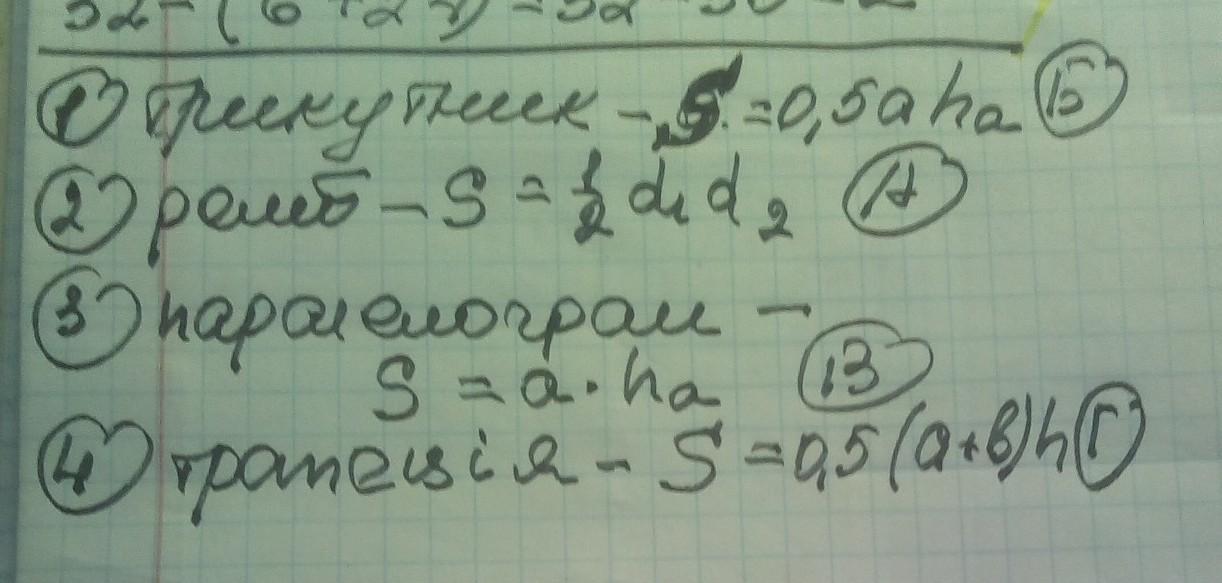 ① трикутник - S = 0,5a hₐ Б
② ромб - S = 1/2 d₁ d₂ А
③ паралелограм -
S = a · hₐ В
④ трапеція - S = 0,5 (a+b)h Г